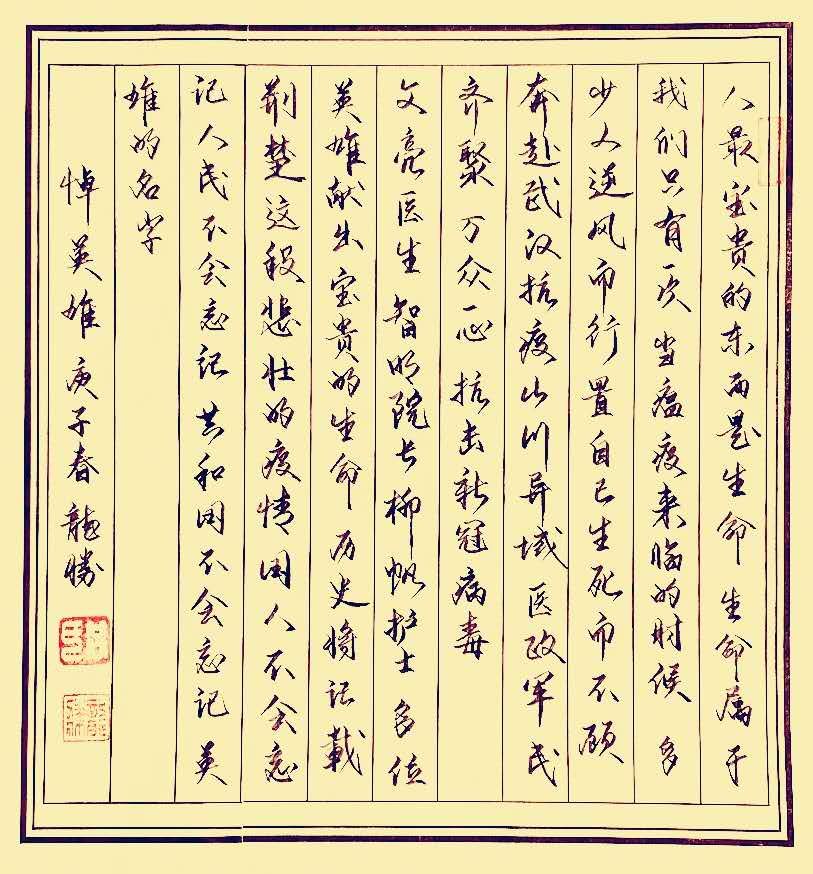 人最宝贵的东西是生命生命属于
我们只有一次当瘟疫来临的时候多
少人逆风而行置自己生死而不顾
奔赴武汉抗疫山川异域医政军民
齐聚万众一心抗击新冠病毒
文亮医生智明院长柳帆护士多位
英雄献出宝贵的生命历史将记载
荆楚这段悲壮的疫情国人不会忘
记人民不会忘记共和国不会忘记英
雄的名字
悼英雄庚子春龍勝